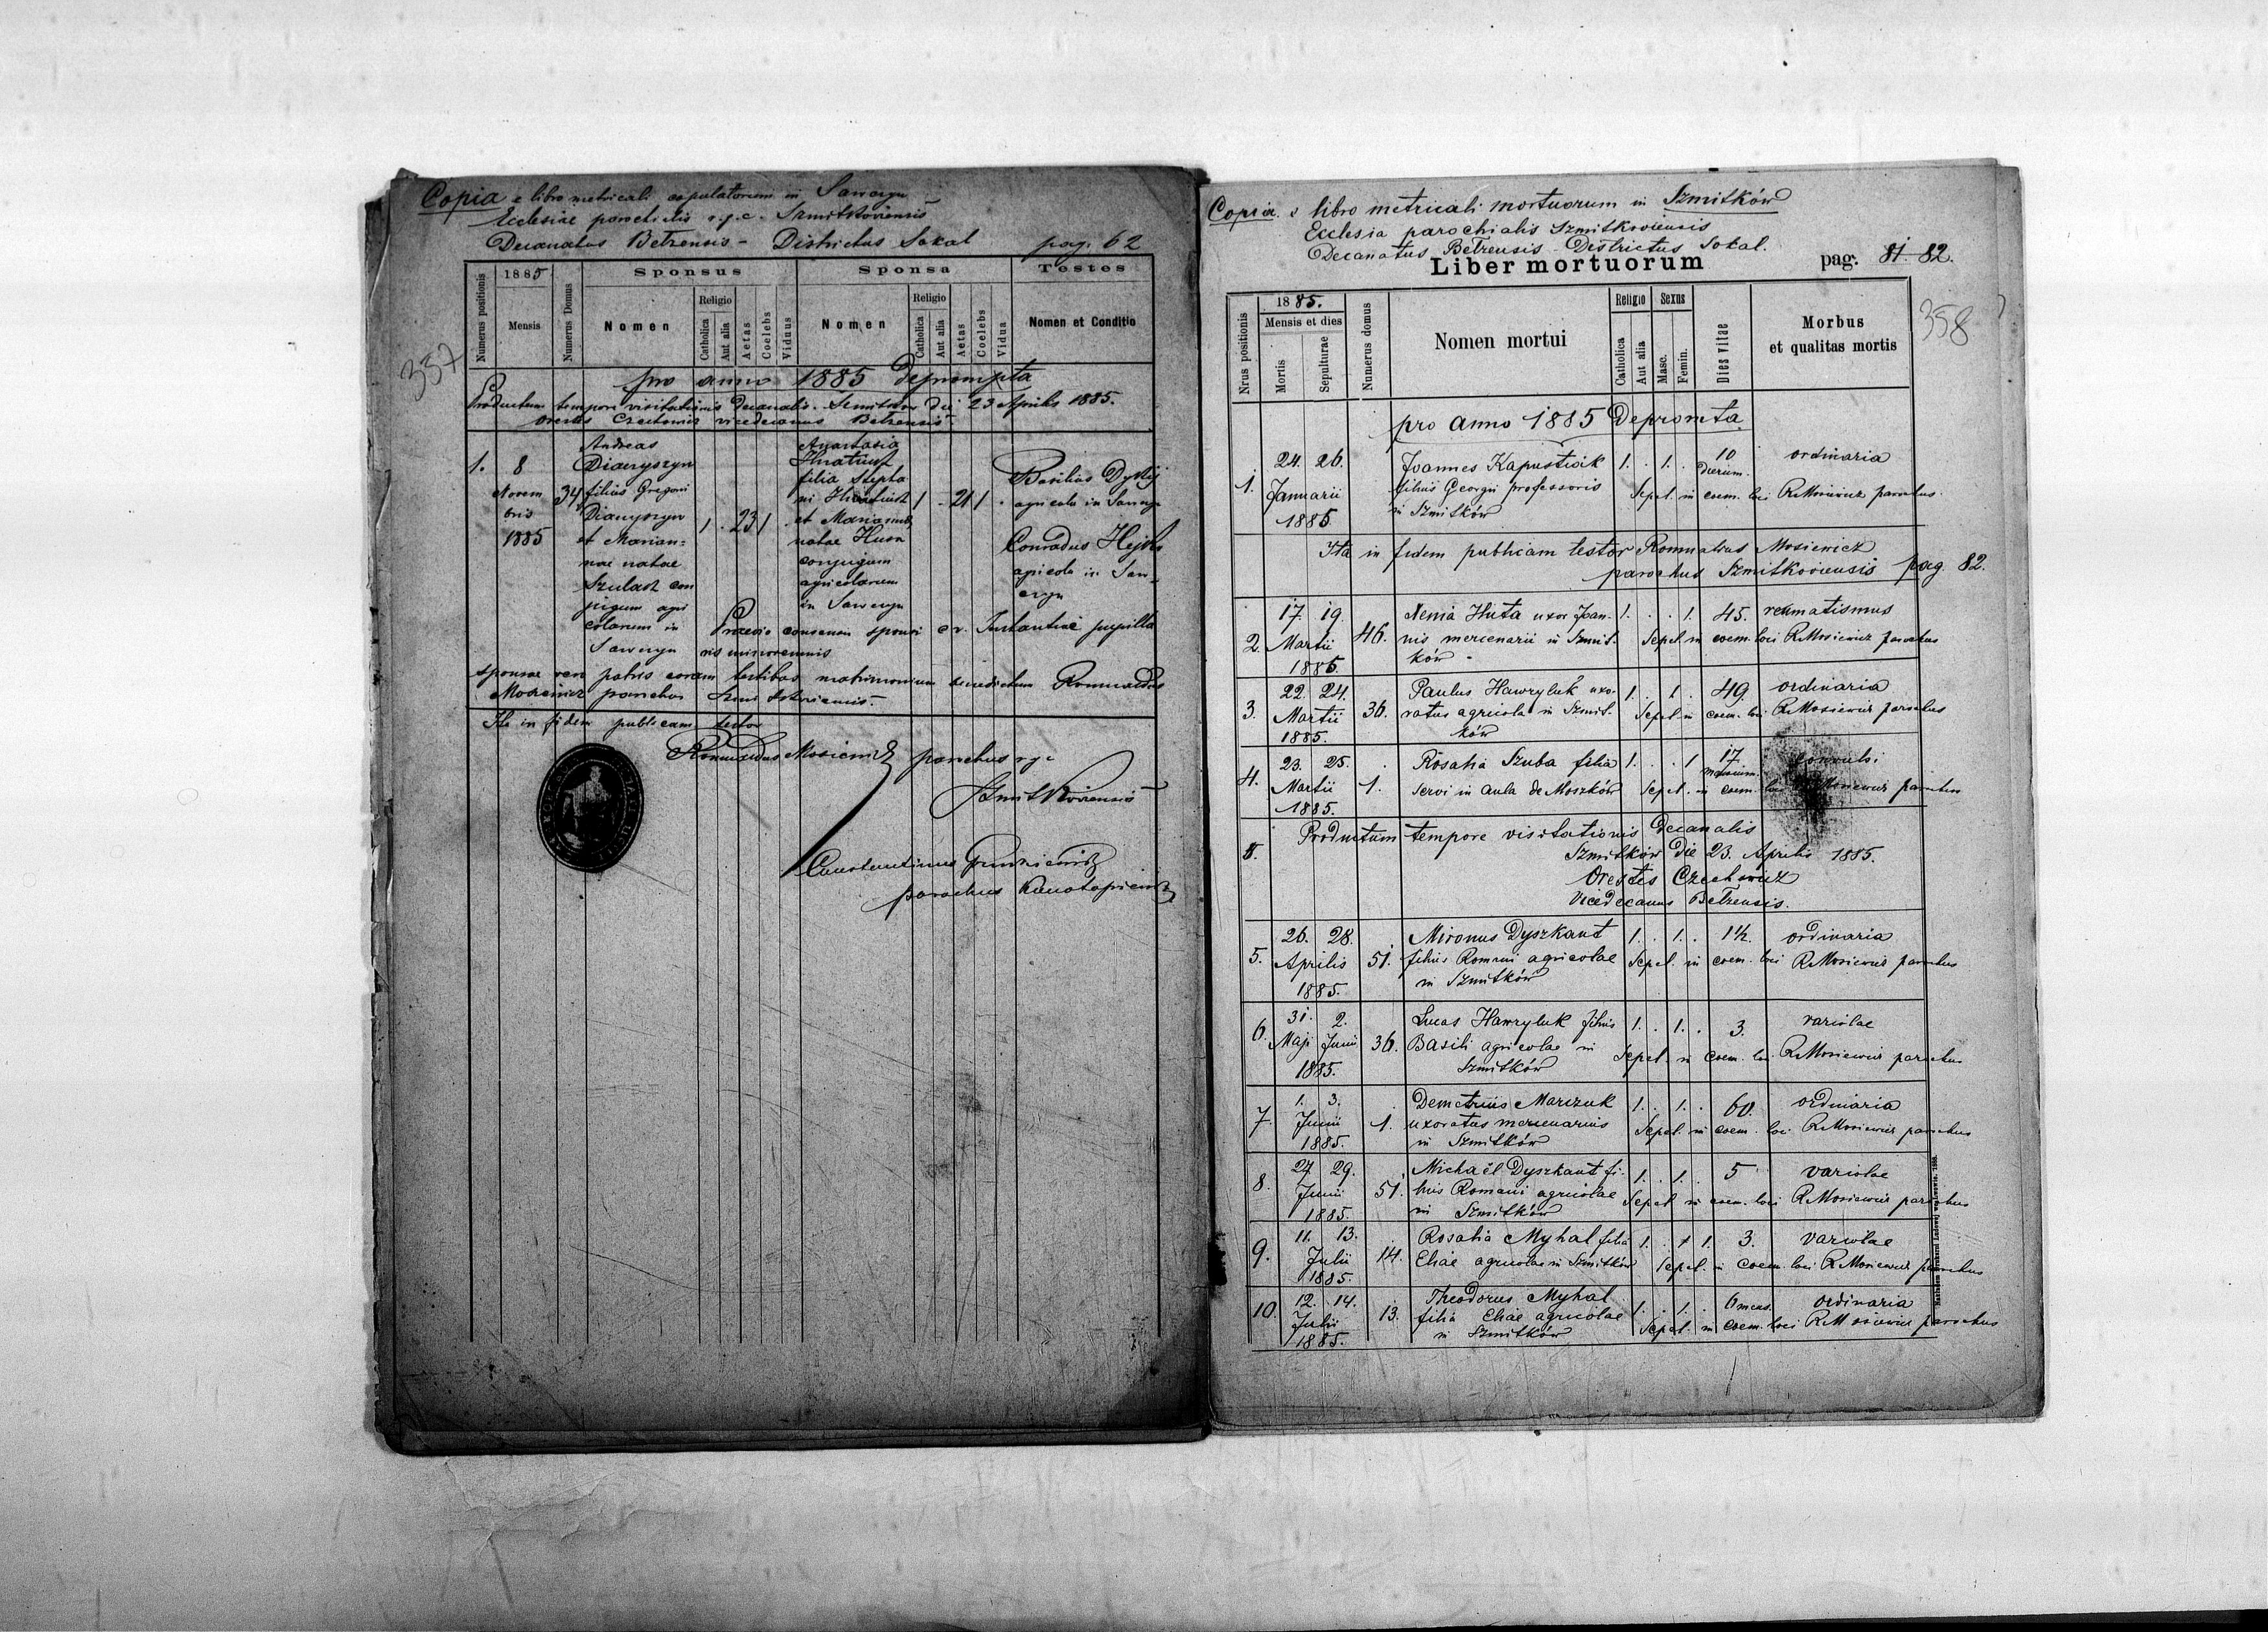 Copia e libro metricali copulatorum in Sawczyn
Ecclesiae parochialis r.g.c. Szmitkoviensis
Decanatus Betzensis - Districtus Sokal pag. 62
357
Numerus positionis
1885
Mensis
Numerus Domus
Sponsus
Nomen
Religio
Catholica
Aut alia
Aetas
Coelebs
Viduus
Sponsa
Nomen
Religio
Catholica
Aut alia
Aetas
Coelebs
Vidua
Testes
Nomen et Conditio
pro anno 1885 deprompta
Productum tempore visitationis decanalis. Szmitków die 23 Aprilis 1885.
Orestes Czechowicz vicedecanus Betzensis
1. 8 Novembris 1885 34
Andreas
filius Gregorii
et Marian=
nae natae
con
jugum agri
colarum in
Sawczyn
1 . 23 1
Anastasia
filia Stepha
ni
et Marianna
natae
conjugum
agricolarum
in Sawczyn
1 . 21 1 .
Basilius
agricola in Sawczyn
Conradus
agricola in Saw=
czyn
Praevio consensu sponsi et Instantiae pupilla
ris
sponsae patris coram testibus matrimonium benedictum Romualdus
Mosiewicz parochus Szmitkoviensis.
Ita in fidem publicam testor
Romualdus Mosiewicz parochus r.g.c
Szmitkoviensis
Constantinus
parochus
Copia e libro metricali mortuorum in Szmitków
Ecclesia parochialis Szmitkoviensis
Decanatus Betzensis - Districtus Sokal.
Liber mortuorum pag. 81. 82.
358
Nrus positionis
1885.
Mensis et dies
Mortis
Sepulturae
Numerus domus
Nomen mortui
Religio
Catholica
Aut alia
Sexus
Masc.
Femin.
Dies vitae
Morbus
et qualitas mortis
pro anno 1885 Depromta
1. 24. 26. Januarii 1885
Joannes Kapustiak 1. . 1. . 10 dierum. ordinaria
filius Georgii professoris Sepel. in coem. loci R Mosiewicz parochus.
in Szmitków
Ita in fidem publicam testor Romualdus Mosiewicz
parochus Szmitkoviensis pag. 82.
2. 17. 19. Martii 1885. 46.
Xenia Huta uxor Joan- 1. . . 1. 45. reumatismus
nis mercenarii in Szmit- Sepel. in coem. loci R Mosiewicz parochus
ków -
3. 22. 24. Martii 1885. 36.
Paulus Hawryluk uxo- 1. . 1. . 49. ordinaria
ratus agricola in Szmit- Sepel. in coem. loci R Mosiewicz parochus
ków
4. 23. 25. Martii 1885. 1.
Rosalia Szuba filia 1. . . 1 17 mensium.
servi in aula de Moszków Sepel. in coem. loci R Mosiewicz parochus
5.
Productum tempore visitationis Decanalis
Szmitków die 23. Aprilis 1885.
Orestes Czechowicz
Vicedecanus Betzensis.
5. 26. 28. Aprilis 1885. 51.
Mironus Dyszkant 1. . 1. . 1½. ordinaria
filius Romani agricolae Sepel. in coem. loci R Mosiewicz parochus
in Szmitków
6. 31. 2. Maji Junii 1885. 36.
Lucas Hawryluk filius 1. . 1. . 3. variolae
Basili agricolae in Sepel. in coem. loci R Mosiewicz parochus
Szmitków
7. 1. 3. Junii 1885. 1.
Demetrius Marczuk 1. . 1. . 60. ordinaria
uxoratus mercenarius Sepel. in coem. loci R Mosiewicz parochus
in Szmitków
8. 27. 29. Junii 1885. 51.
Michaël Dyszkant fi- 1. . 1. . 5 variolae
lius Romani agricolae Sepel. in coem. loci R Mosiewicz parochus
in Szmitków
9. 11. 13. Julii 1885. 14.
Rosalia Myhal filia 1. . 1. 3. variolae
Eliae agricolae in Szmitków Sepel. in coem. loci R Mosiewicz parochus
10. 12. 14. Julii 1885. 13.
Theodorus Myhal 1. . 1. . 6 mens. ordinaria
filia Eliae agricolae Sepel. in coem. loci R Mosiewicz parochus
in Szmitków